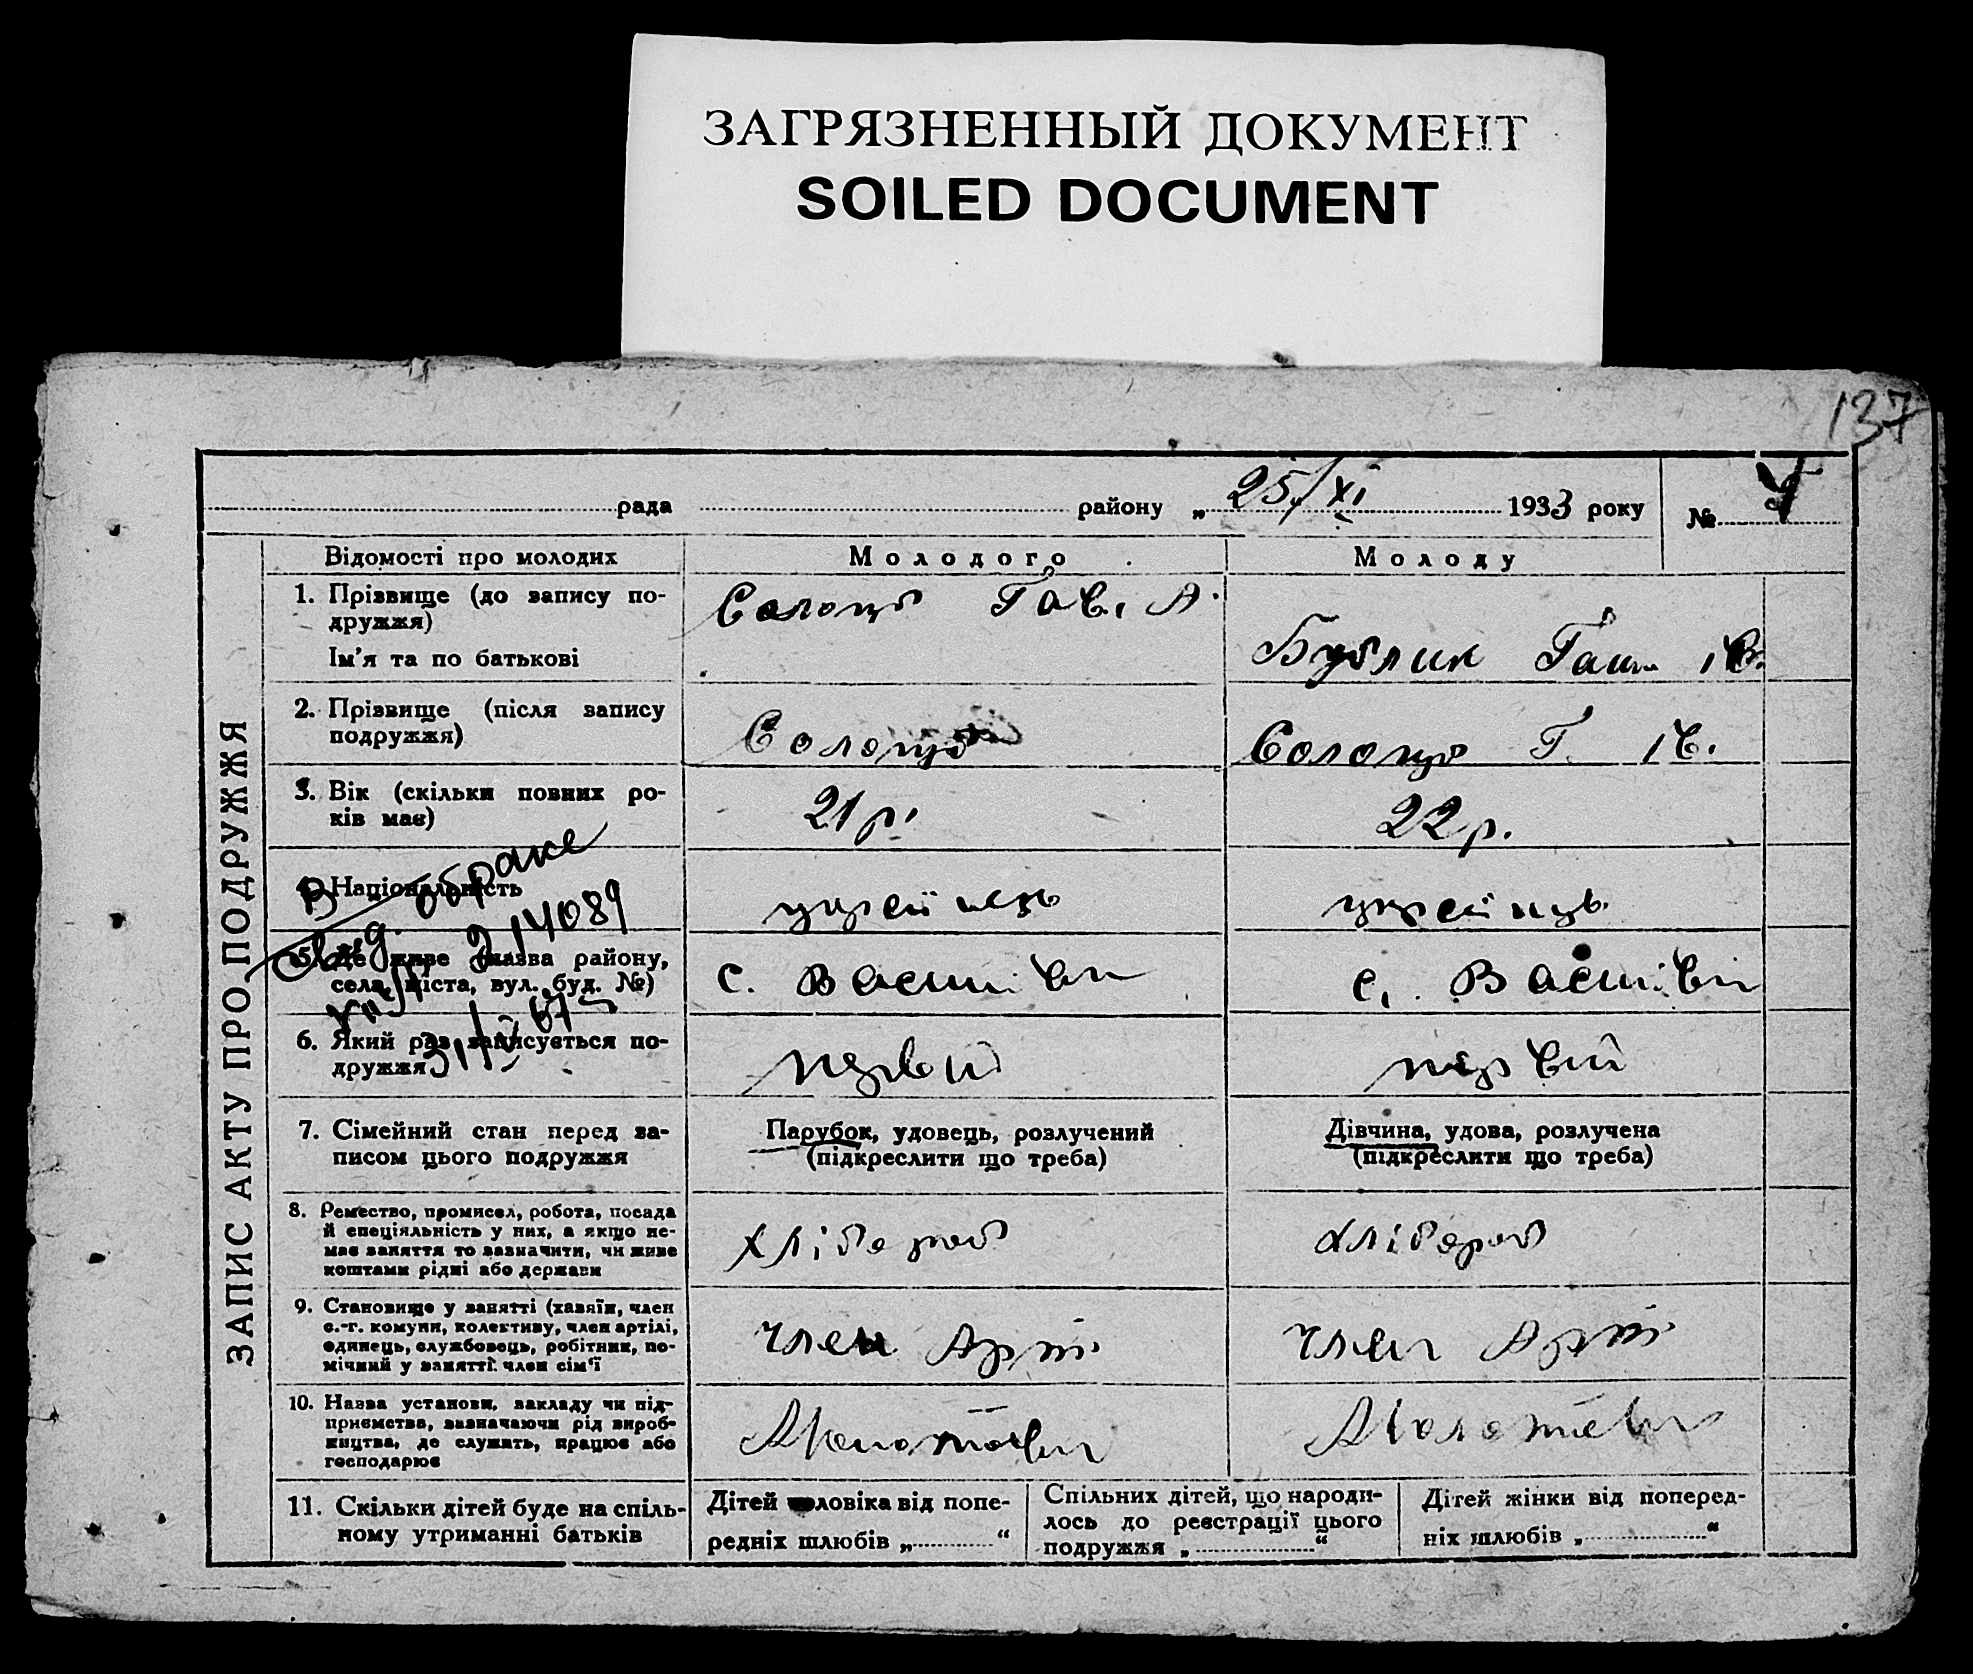 ЗАГРЯЗНЕННЫЙ ДОКУМЕНТ
SOILED DOCUMENT
137
рада району „ 25/XI 1933 року №
ЗАПИС АКТУ ПРО ПОДРУЖЖЯ
Відомості про молодих Молодого Молоду
1. Прізвище (до запису по-
дружжя)
Ім'я та по батькові
Гав. А.
Бублик Ів.
2. Прізвище (після запису
подружжя)
Г. Ів.
3. Вік (скільки повних ро-
ків має)
21 р. 22 р.
4. Національність
5. Де живе (назва району,
села, міста, вул. буд. №)
с. с.
В
браке
214089
6. Який раз записується по-
дружжя
первий первий
7. Сімейний стан перед за-
писом цього подружжя
Парубок, удовець, розлучений
(підкреслити що треба)
Дівчина, удова, розлучена
(підкреслити що треба)
8. Ремество, промисел, робота, посада
й спеціяльність у них, а якщо не-
має заняття то зазначити, чи живе
коштами рідні або держави
хлібороб хлібороб
9. Становище у занятті (хазяїн, член
с.-г. комуни, колективу, член артілі,
одинець, службовець, робітник, по-
мічний у занятті член сім'ї
член Арт. член Арт.
10. Назва установи, закладу чи під-
приємства, зазначаючи рід вироб-
ництва, де служить, працює або
господарює
11. Скільки дітей буде на спіль-
ному утриманні батьків
Дітей чоловіка від попе-
редніх шлюбів „ “
Спільних дітей, що народи-
лось до реєстрації цього
подружжя „ “
Дітей жінки від поперед-
ніх шлюбів „ “